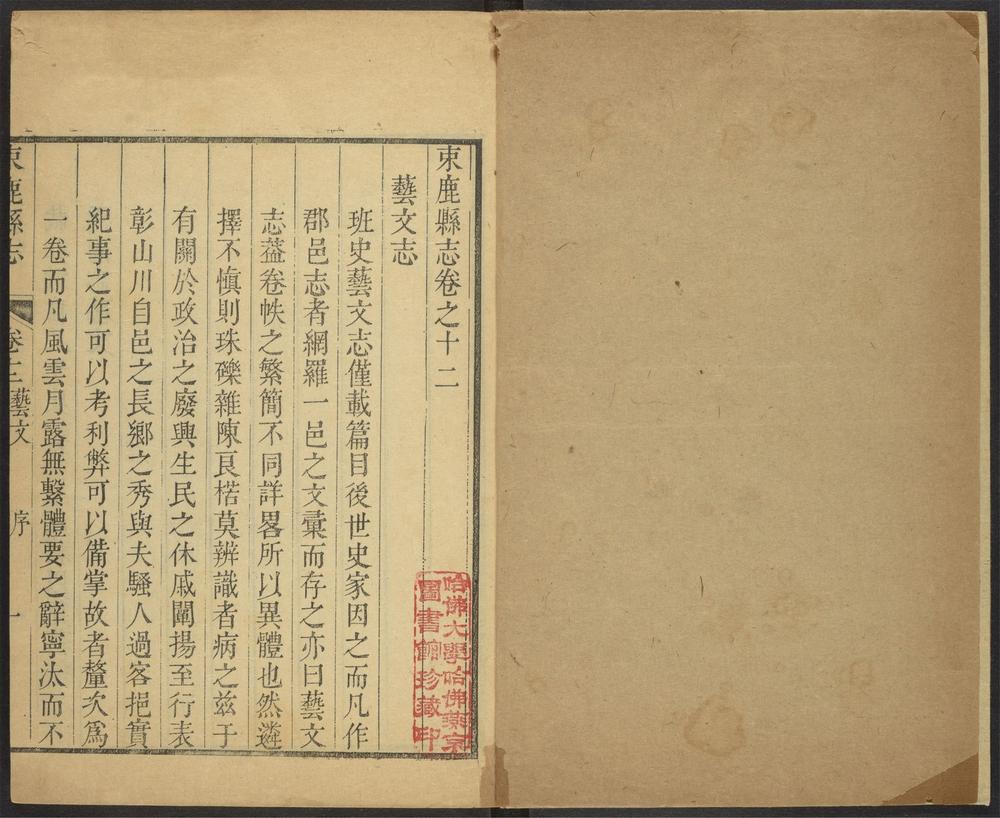 束鹿縣志卷之十二
藝文志
班史藝文志僅載篇目後世史家因之而凡作
郡邑志者網羅一邑之文彙而存之亦曰藝文
志葢卷帙之繁簡不同詳畧所以異體也然遴
擇不慎則珠礫雜陳良楛莫辨識者病之兹于
有關於政治之廢興生民之休戚闡揚至行表
彰山川自邑之長鄉之秀與夫騷人過客挹實
紀事之作可以考利弊可以備掌故者釐次為
一卷而凡風雲月露無繫體要之辭寧汰而不
束鹿縣志
卷十二藝文
序
一
哈佛大學哈佛燕京
圖書館珍藏印